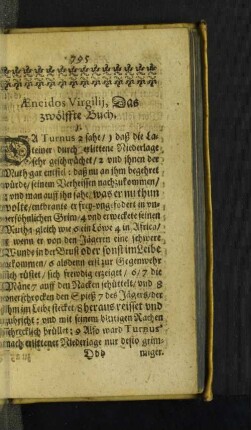 795
Æneidos Virgilij, Das
zwölffte Buch.
I.
DA Turnus 2 sahe/ 1 daß die La-
teiner durch erlittene Niederlage
sehr geschwächet/ 2 und ihnen der
Muth gar entfiel: daß nu an ihm begehret
würde/ seinem Verheissen nachzukommen/
2 und man auff ihn sahe, was er nu thun
wolte/ entbrante er 4 ungefodert in un-
versöhnlichen Grim/ 4 und erweckete seinen
Muth: gleich wie 6 ein Löwe 4 in Africa/
5 wenn er von den Jägern eine schwere
Wunde in der Brust oder sonst im Leibe
bekommen/ 6 alsdenn erst zur Gegenwehr
sich rüstet/ sich freudig erzeiget/ 6/ 7 die
Mäne 7 auff den Nacken schüttelt/ und 8
unerschrocken den Spieß 7 des Jägers/ der
ihm im Leibe stecket/ 8 heraus reisset und
zubricht: und mit seinem blutigen Rachen
schrecklich brüllet: 9 Also ward Turnus
nach erlittener Niederlage nur desto grim-
Ddd miger.